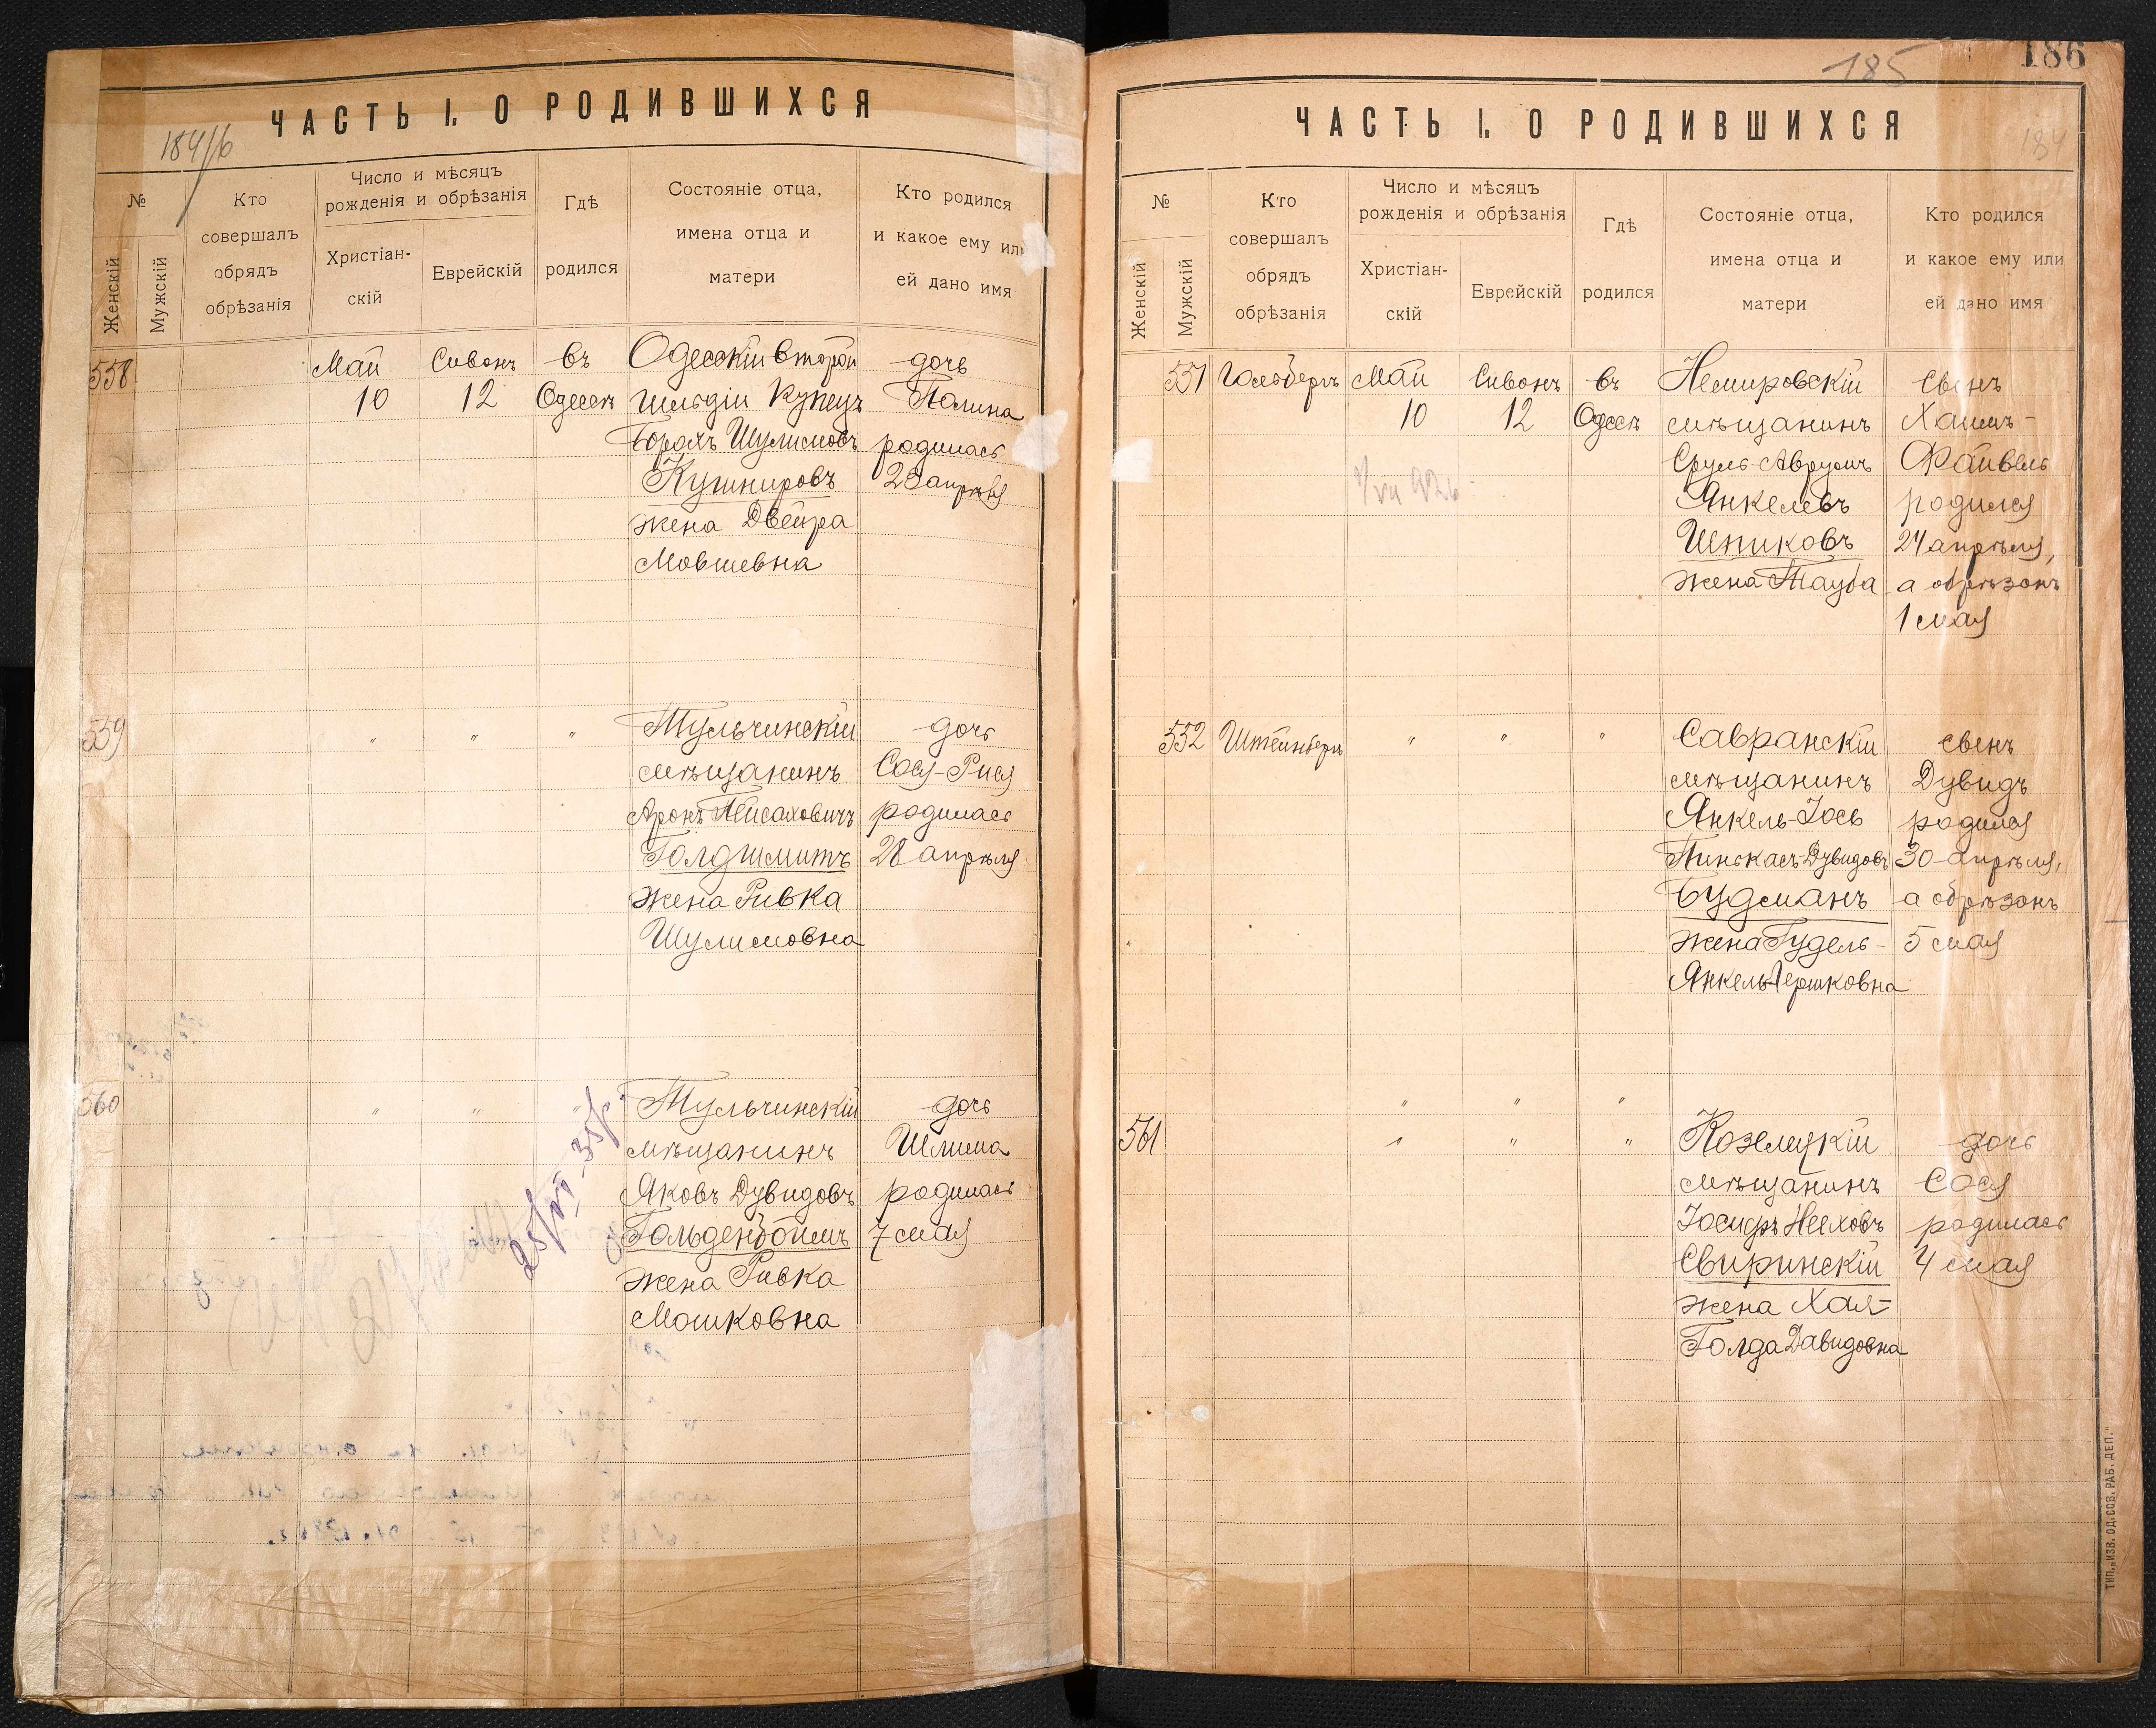 184/б
ЧАСТЬ I. О РОДИВШИХСЯ
№
Женскій
Мужскій
Кто
совершалъ
обрядъ
обрѣзанія
Число и мѣсяцъ
рожденія и обрѣзанія
Христіан-
скій
Еврейскій
Гдѣ
родился
Состояніе отца,
имена отца и
матери
Кто родился
и какое ему или
ей дано имя
558 Май Сивонъ въ Одесскій второй дочь
10 12 Одессѣ гильдіи Купецъ Полина
Борохъ Шулимовъ родилась
Кушнировъ 28 апрѣля
жена Двейра
Мовшевна
559 " " " Тульчинскій дочь
мѣщанинъ Сося-Рися
Аронъ Пейсаховичъ родилась
Голдшмитъ 28 апрѣля
жена Ривка
Шулимовна
560 " " " Тульчинскій дочь
мѣщанинъ Шлима
Яковъ Дувидовъ родилась
Гольденбоймъ 7 мая
жена Ривка
Мошковна
185
186
ЧАСТЬ I. О РОДИВШИХСЯ
184
№
Женскій
Мужскій
Кто
совершалъ
обрядъ
обрѣзанія
Число и мѣсяцъ
рожденія и обрѣзанія
Христіан-
скій
Еврейскій
Гдѣ
родился
Состояніе отца,
имена отца и
матери
Кто родился
и какое ему или
ей дано имя
551 Гольбергъ Май Сивонъ въ Немировскій сынъ
10 12 Одессѣ мѣщанинъ Хаимъ-
Сруль-Аврумъ Файвель
Янкелевъ родился
Шпиковъ 24 апрѣля,
жена Тауба а обрѣзанъ
1 мая
552 Штейнбергъ " " " Савранскій сынъ
мѣщанинъ Дувидъ
Янкель-Іось родился
Пинкасъ-Дувидовъ 30 апрѣля,
Будманъ а обрѣзанъ
жена Гудель- 5 мая
Янкель Гершковна
" " "
561 " " " Козелецкій дочь
мѣщанинъ Сося
Іосифъ Неиховъ родилась
Свиринскій 4 мая
жена Хая-
Голда Давидовна
ТИП. „ИЗВ. ОД. СОВ. РАБ. ДЕП.“